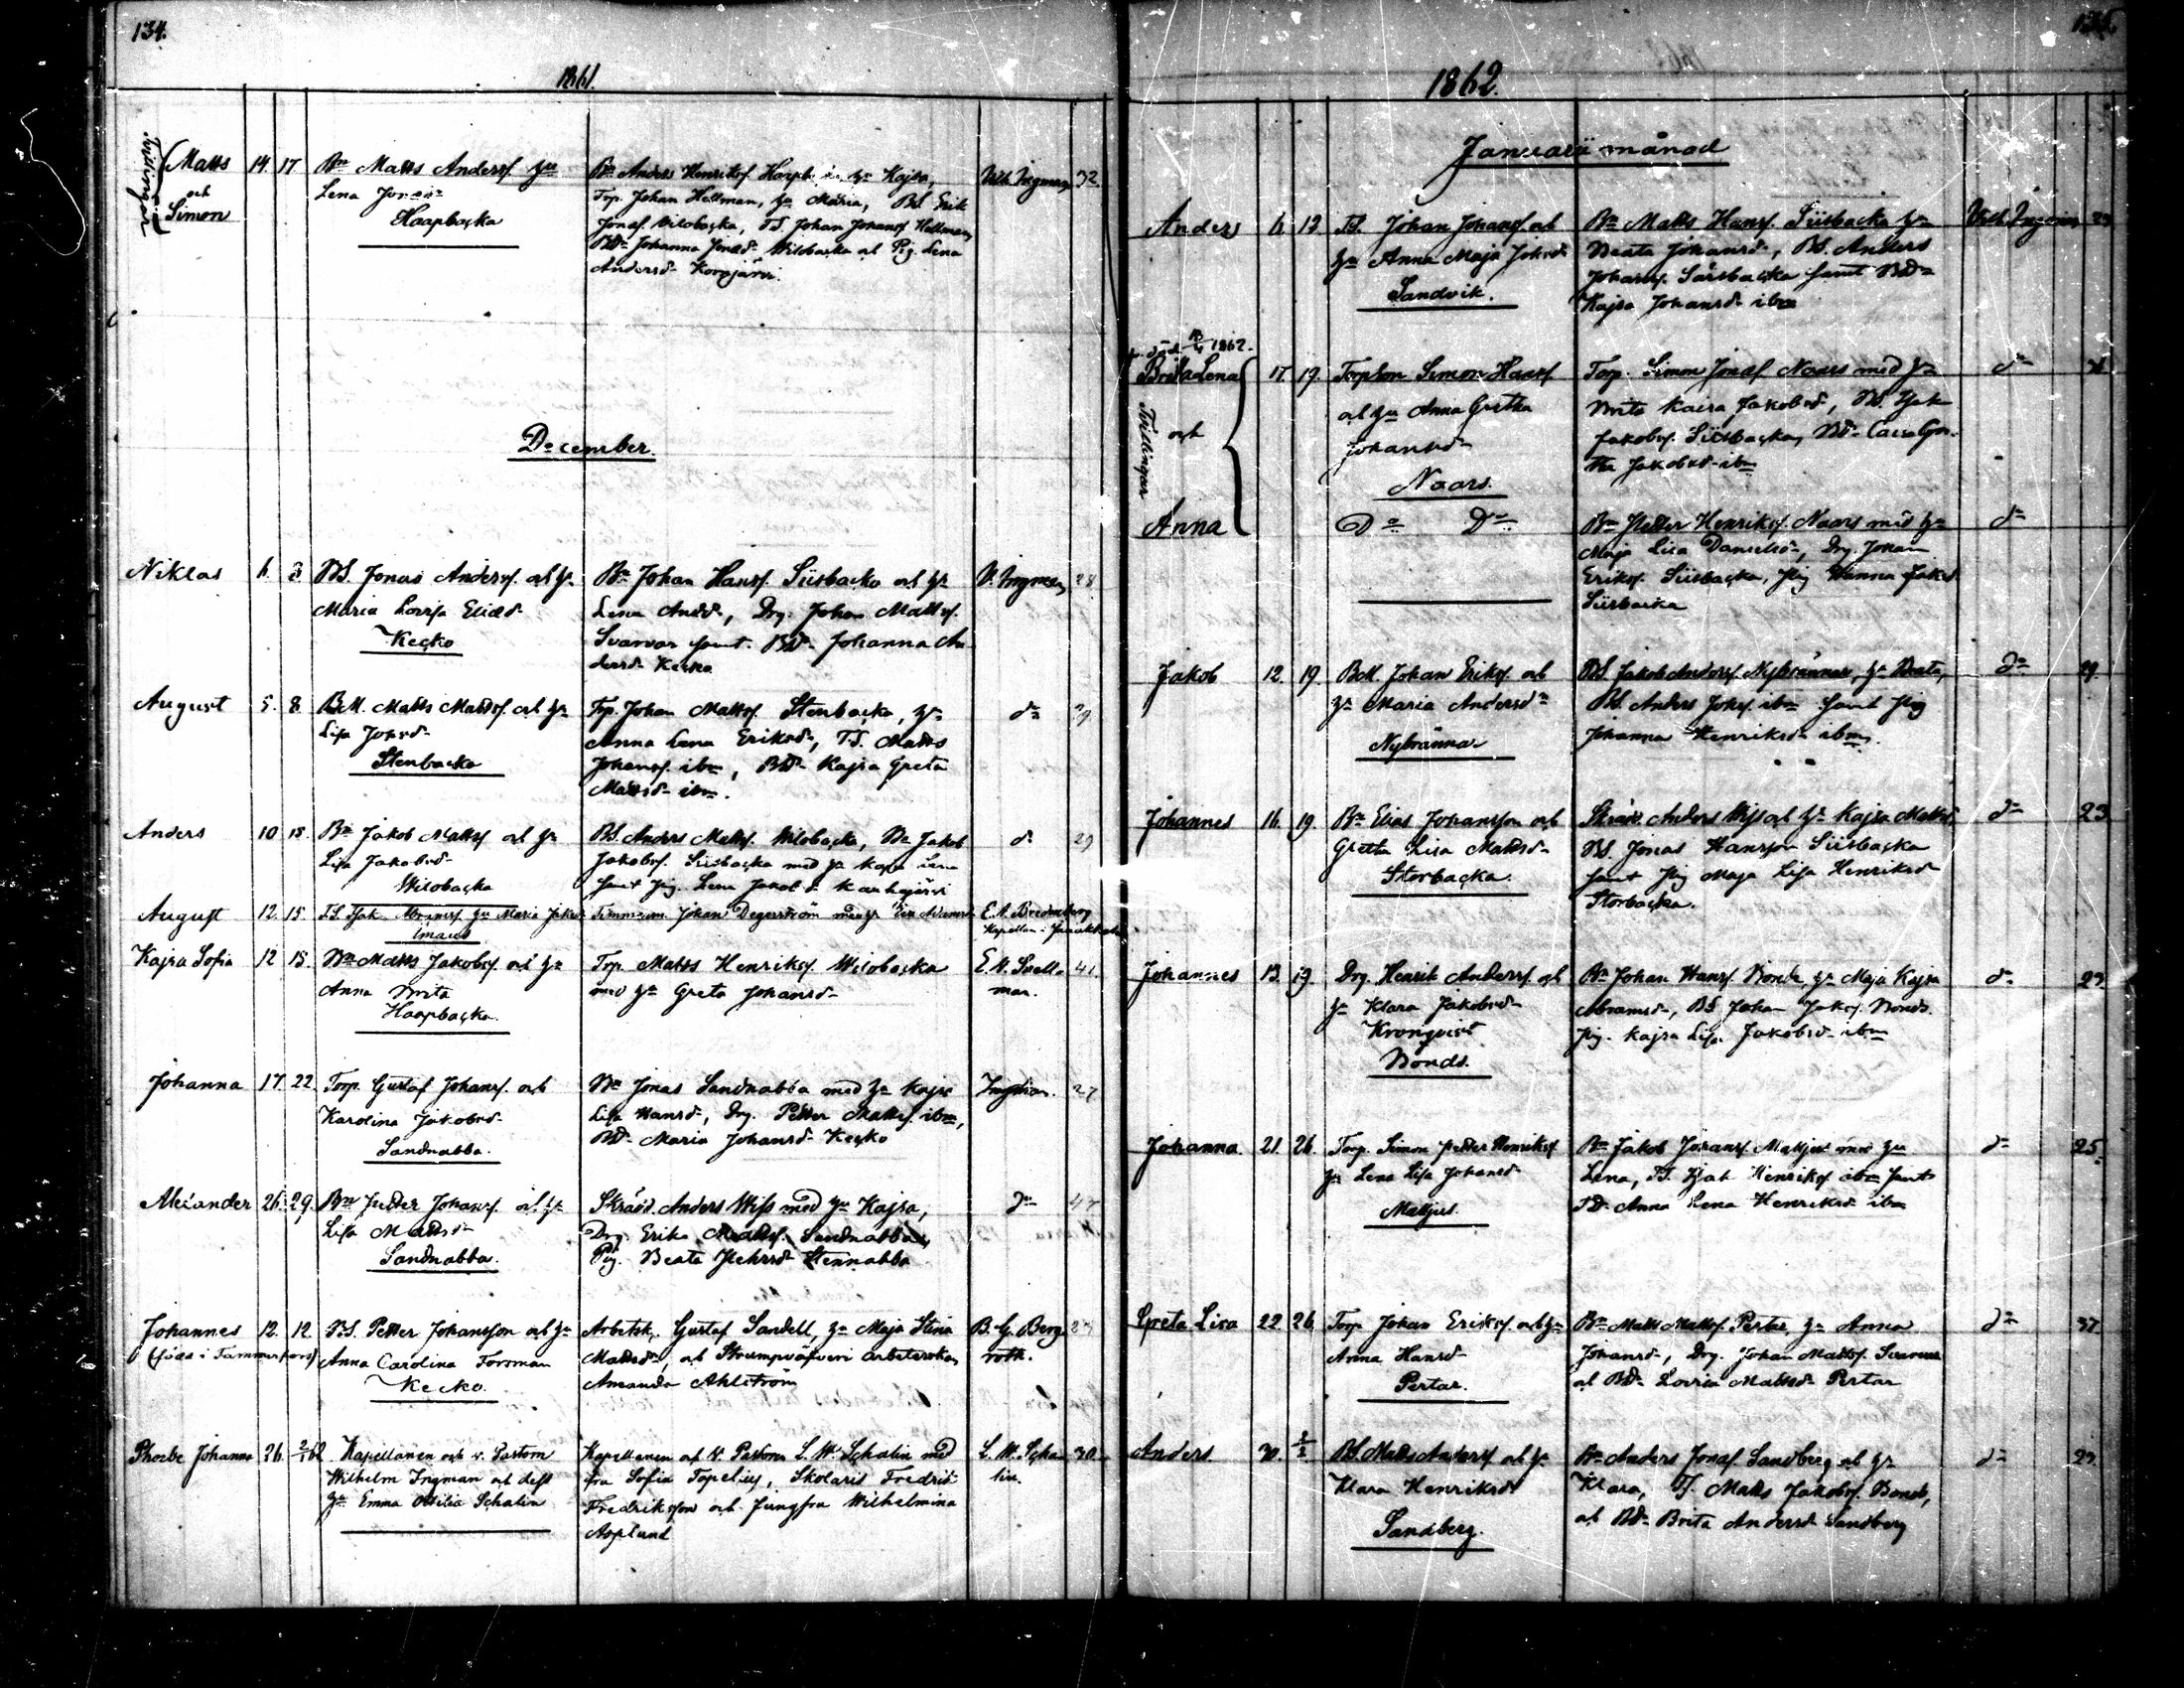 134.
1861.
Tvillingar
Matts 14. 17. Bn Matts Anders. hu
och
Simon
Lena Jonasd
Haapbacka
Bn Anders Henriksf. hu Kajsa,
Torp. Johan Hellman, hu Maria, BS. Erik
Jonasf. Wilobacka, TS. Johan Johansf. Hellman,
Bdr Johanna Jonasdr Wilobacka och Pig. Lena
Andersdr Korpjärvi.
Wilh. Ingman 32.
December.
Niklas 6. 8 BS. Jonas Andersf. och hu
Maria Lovisa Eliasd
Kecko
Bn Johan Hansf. Siisbacka och hu
Lena Andd, Drg. Johan Mattsf.
Svarvar samt Bdr Johanna An-
dersdr Kecko
W. Ingman 28
August 5. 8. BM. Matts Mattsf. och hu
Lisa Johsd
Stenbacka
Trp. Johan Mattsf. Stenbacka, hu
Anna Lena Eriksd, TS. Matts
Johansf. ibm, Bdr Kajsa Greta
Mattsdr ibm.
do 29
Anders 10 15. Bn Jakob Mattsf. och hu
Lisa Jakobsd
Wilobacka
BS. Anders Mattsf. Wilobacka, Bn Jakob
Jakobsf. Siisbacka med hu Kajsa Lena
samt Pig. Lena Jakobsdr Kauhajärvi
do 29
August 12. 15. TS. Isak Abramsf. hu Maria Jakobsd
Timmerm. Johan Degerström med hu
E. A. Bredenberg
Kapellan i
Kajsa Sofia 12 15. Bn Matts Jakobsf. och hu
Anna Brita
Haapbacka.
Torp. Matts Henriksf. Wilobacka
med hu Greta Johansd
E. W. Snell-
man. 41.
Johanna 17. 22. Torp. Gustaf Johansf. och
Karolina Jakobsd
Sandnabba.
Bn Jonas Sandnabba med hu Kajsa
Lisa Hansd, Drg. Petter Mattsf. ibm,
Bdr Maria Johansd Kecko
Ingman. 27
Alexander 26. 29. Bn Petter Johansf. och hu
Lisa Mattsd
Sandnabba.
Skrädd. Anders Wiss med hu Kajsa,
Drg. Erik Mattsf. Sandnabba,
Pig. Beata Pehrsd Stennabba
do 47
Johannes 12. 12. BS. Petter Johansson och hu
(född i Tammerfors) Anna Carolina Forsman
Kecko.
Arbetsk. Gustaf Sandell, hu Maja Stina
Mattsd, och Strumpväfveri arbeterskan
Amanda Ahlström
B. G. Berg-
roth.
Phoebe Johanna 26. 2/1 62 Kapellanen och v. Pastorn
Wilhelm Ingman och dess
hu Emma Otilia Schalin
Kapellanen och v. Pastorn L. W. Schalin med
fru Sofia Topelius, Skolaris Fredrik
Fredriksson och Jungfru Wilhelmina
Asplund
L. W. Scha-
lin. 30.
1862.
Januarii månad
Anders 6. 13. TS. Johan Johansf. och
hu Anna Maja Johsd
Sandvik.
Bn Matts Hansf. Siisbacka hu
Beata Johansd, BS. Anders
Johansf. Siisbacka samt Bdr
Kajsa Johansd ibm
Wilh. Ingman 29
död 1862.
Brita Lena 17. 19. TorpSon Simon Hansf.
och hu Anna Gretha
Johansd
Naars.
Tvillingar
och
Torp. Simon Jonasf. Naars med hu
Brita Kaisa Jakobsd, BS. Isak
Jakobsf. Siisbacka, Bdr Caisa Gre-
tha Jakobsd ibm
do
Anna Do Do
Bn Petter Henriksf. Naars med hu
Maja Lisa Danielsd, Drg. Johan
Eriksf. Siisbacka, Pig Hanna Jakobsd
Siisbacka
do
Jakob 12. 19. BM. Johan Eriksf. och
hu Maria Andersd
Nybränna
BS. Jakob Andersf. Nybränna, hu Beata,
BS. Anders Johsf. ibm samt Pig
Johanna Henriksd ibm.
do
Johannes 16. 19. Bn Elias Johansson och
Gretha Lisa Mattsd
Storbacka.
Skrädd. Anders Wiss och hu Kajsa Mattsd,
BS. Jonas Hansson Siisbacka
samt Pig Maja Lisa Henriksd
Storbacka.
do 23
Johannes 13. 19. Drg. Henrik Andersf. och
hu Klara Jakobsd
Kronqvist
Bonds.
Bn Johan Hansf. Bonde, hu Maja Kajsa
Abramsd, BS. Johan Jakobsf. Bonds.
Pig. Kajsa Lisa Jakobsd ibm
do 23.
Johanna. 21. 26. Torp. Simon Petter Henriksf.
hu Lena Lisa Johansd
Matjus.
Bn Jakob Johansf. Matjus med hu
Lena, TS. Isak Henriksf. ibm samt
TD. Anna Lena Henriksd ibm
do 25.
Greta Lisa 22. 26. Torp Johan Eriksf. och hu
Anna Hansd
Pertar.
Bn Matts Mattsf. Pertar, hu Anna
Johansd, Drg. Johan Mattsf. Svarvar
och Bdr Lovisa Mattsd Pertar
do 37.
Anders. 30. 2/2 BS. Matts Andersf. och hu
Klara Henriksd
Sandberg.
Bn Anders Jonasf. Sandberg och hu
Klara, TS. Matts Jakobsf. Bonds,
och Bdr Brita Andersd Sandberg
do 23.